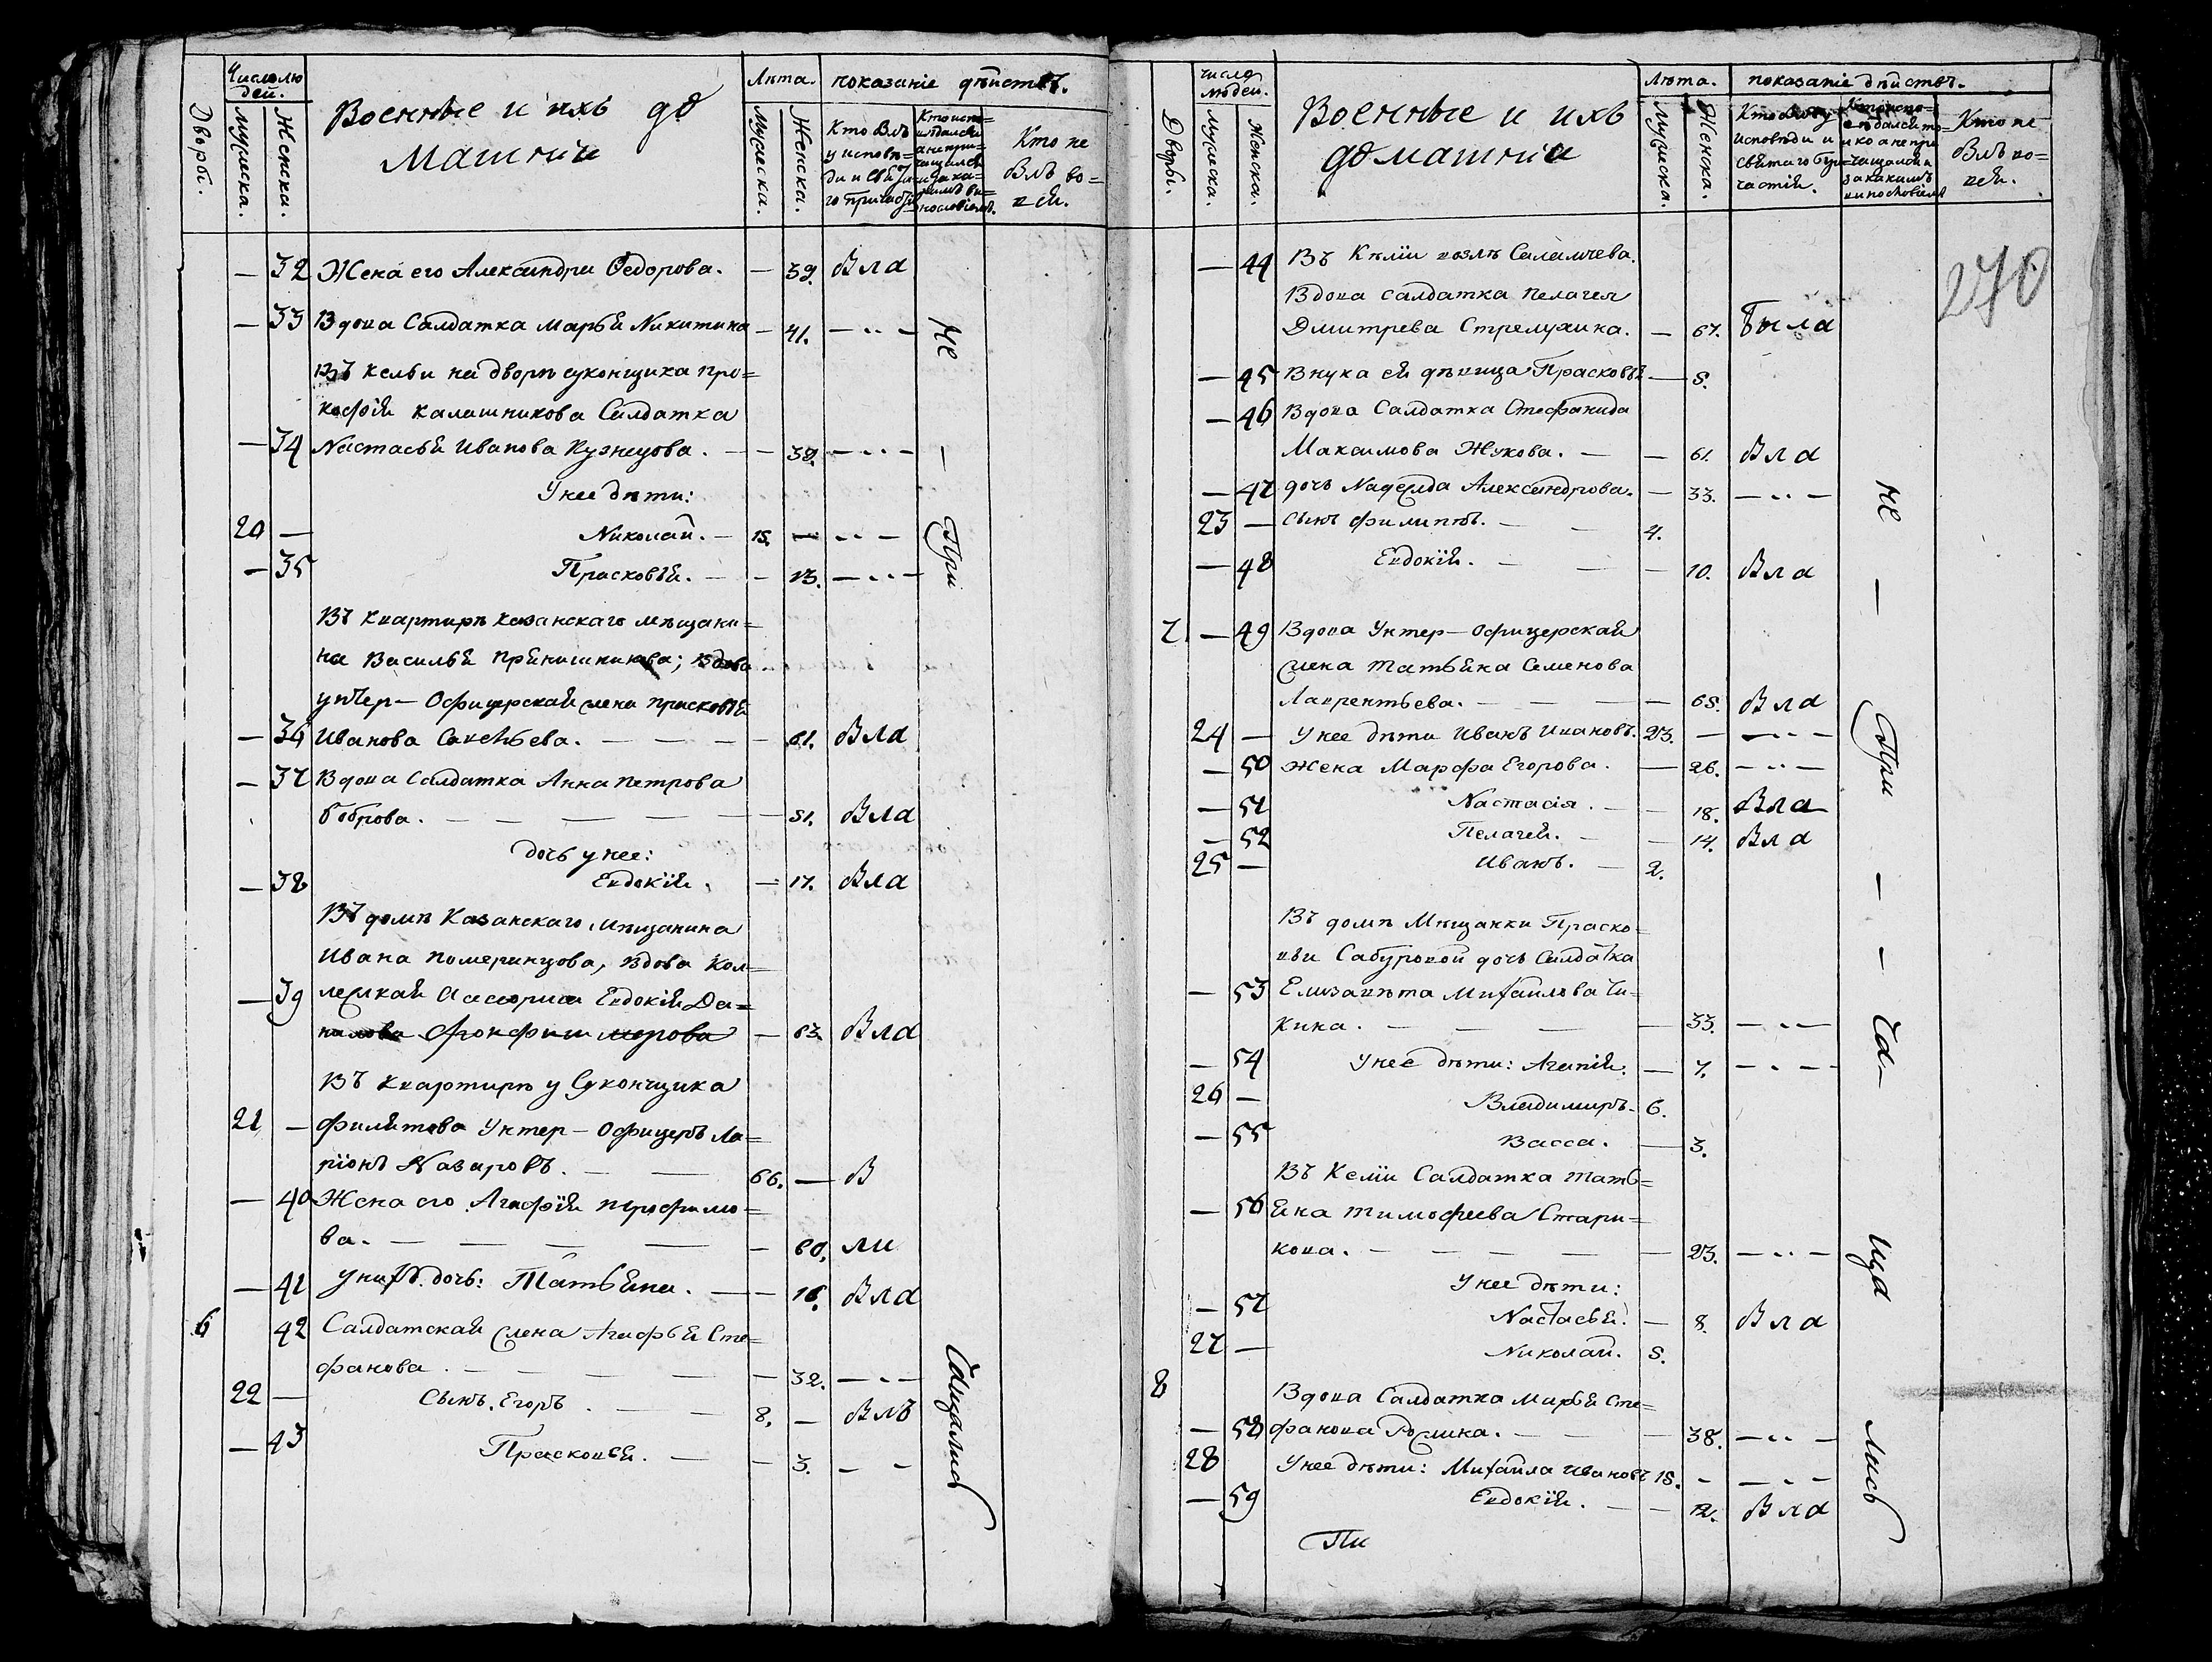 Число лю
дей.
Дворы.
Мужеска.
Женска.
Военные и ихъ до
машніи
Лѣта.
Мужеска.
Женска.
показаніе дѣйствъ.
Кто былъ
у исповѣ=
ди и свѧта=
го причастїѧ
Кто не
былъ во=
все.
— 32 Жена его Александра Ѳедорова. — 39. Была
— 33 Вдова Салдатка Марьѧ Никитина — 41. — „ —
Не
Въ кельи на дворѣ суконщика Про=
кофїѧ Калашникова Салдатка
— 34 Настасьѧ Иванова Кузнецова. — 38. — „ —
У нее дѣти:
20 — Николай. — 15. — — „ —
При
— 35 Прасковьѧ. — — 13. — „ —
Въ квартирѣ Казанскаго мѣщани=
на Васильѧ Прѧнишникова; вдова
унтер-Офицерскаѧ жена Прасковьѧ
— 36 Иванова Савельева. — — — 61. Была
— 37 Вдова Салдатка Анна Петрова
Боброва. — — — — 51. Была
дочь у нее:
— 38 Евдокїѧ. — 17. Была
Въ домѣ Казанскаго мѣщанина
Ивана Померанцова, вдова Кол=
— 39 лежскаѧ Ассесорша Евдокїѧ Да=
нилова — 63. Была
Въ квартирѣ у Суконщика
21 — Филатова Унтер-Офицеръ Ла=
рїонъ Назаровъ. — — 66. — Бы
— 40 Жена его Агафїѧ Трофимо=
ва. — — — — — 60. ли
— 41 У нихъ дочь: Татьѧна. — — 16. Была
6 42 Салдатскаѧ жена Агафьѧ Сте=
фанова. — — — — 32. — „ —
22 — Сынъ Егоръ. — — 8. — Былъ
— 43 Прасковьѧ. — — 3. — —
Чащались
число
людей.
Дворы.
Мужеска.
Женска.
Военные и ихъ
домашнїи
Лѣта.
Мужеска.
Женска.
показанїе дѣйствъ.
Кто былъ у
исповѣди и
свѧтаго при=
частїѧ.
Кто не
былъ во=
все.
270
— 44 Въ Кѣлїи возлѣ
Вдова салдатка Пелагеѧ
Дмитрева Стрелухина. — 67. Была
— 45 Внука еѧ дѣвица Прасковьѧ — 5.
— 46 Вдова Салдатка Стефанида
Макаимова Жукова. — — 61. Была
— 47 дочь Надежда Александрова. — 33. — „ —
Не
23 — сынъ Филиппъ. — — 4.
— 48 Евдокїѧ. — — — 10. Была
—
7 — 49 Вдова Унтер-Офицерскаѧ
жена Татьѧна Семенова
Лаврентьева. — — — — 68. Была
При
24 — У нее дѣти Иванъ Ивановъ. 23. — — „ —
— 50 Жена Марфа Егорова. — 26. — „ —
— 51 Настасїѧ. — — 18. Была
— 52 Пелагеѧ. — — 14. Была
25 — Иванъ. — 2.
—
Въ домѣ Мѣщанки Праско=
вьи Сабуровой дочь Салдатка
— 53 Елизавѣта Михайлова Чи=
кина. — — — — 33. — „ —
Ча—
— 54 У нее дѣти: Агапїѧ. — 7. — „ —
26 — Владимиръ. 6.
— 55 Васса. — 3.
Въ Келїи Салдатка Тать=
— 56 ѧна Тимофеева Стари=
кова. — — — — — 23. — „ —
Ща
У нее дѣти:
— 57 Настасьѧ. — 8. Была
27 — Николай. 5.
8 Вдова Салдатка Марьѧ Сте=
— 58 фанова — — 38. — „ —
лись
28 У нее дѣти: Михайла Ивановъ 15. — — „ —
— 59 Евдокїѧ. — — 12. Была
Пи